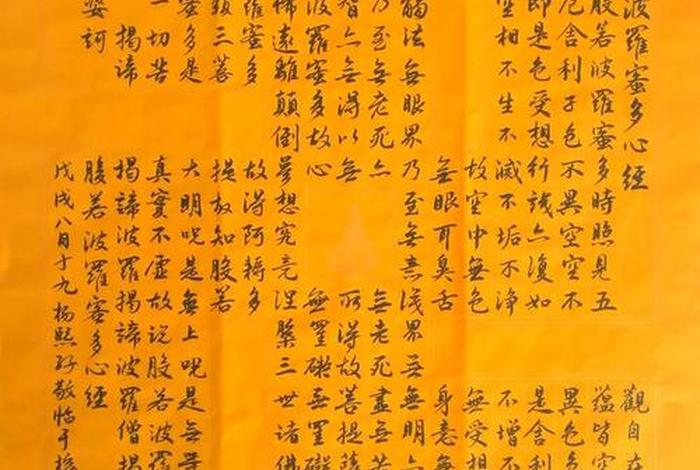 波羅蜜多心經 觀自在
般若波羅蜜多時照見五蘊皆空
厄舍利子色不異空空不異色色
即是色受想行識亦復如是舍利
空相不生不滅不垢不淨不增不
故空中無色無受想
無眼耳鼻舌身意無
觸法無眼界乃至無意識界無無明亦
乃至無老死亦無老死盡無苦
智亦無得以無所得故菩提薩
波羅蜜多故心無罣礙無罣礙
怖遠離顛倒夢想究竟涅槃三世諸佛
羅蜜多故得阿耨多
藐三菩提故知般若
蜜多是大明咒是無上咒是無等
一切苦真實不虛故說般若波羅
揭諦揭諦波羅揭諦波羅僧揭
婆訶般若波羅蜜多心經
戊戌八月十九楊熙敬臨于